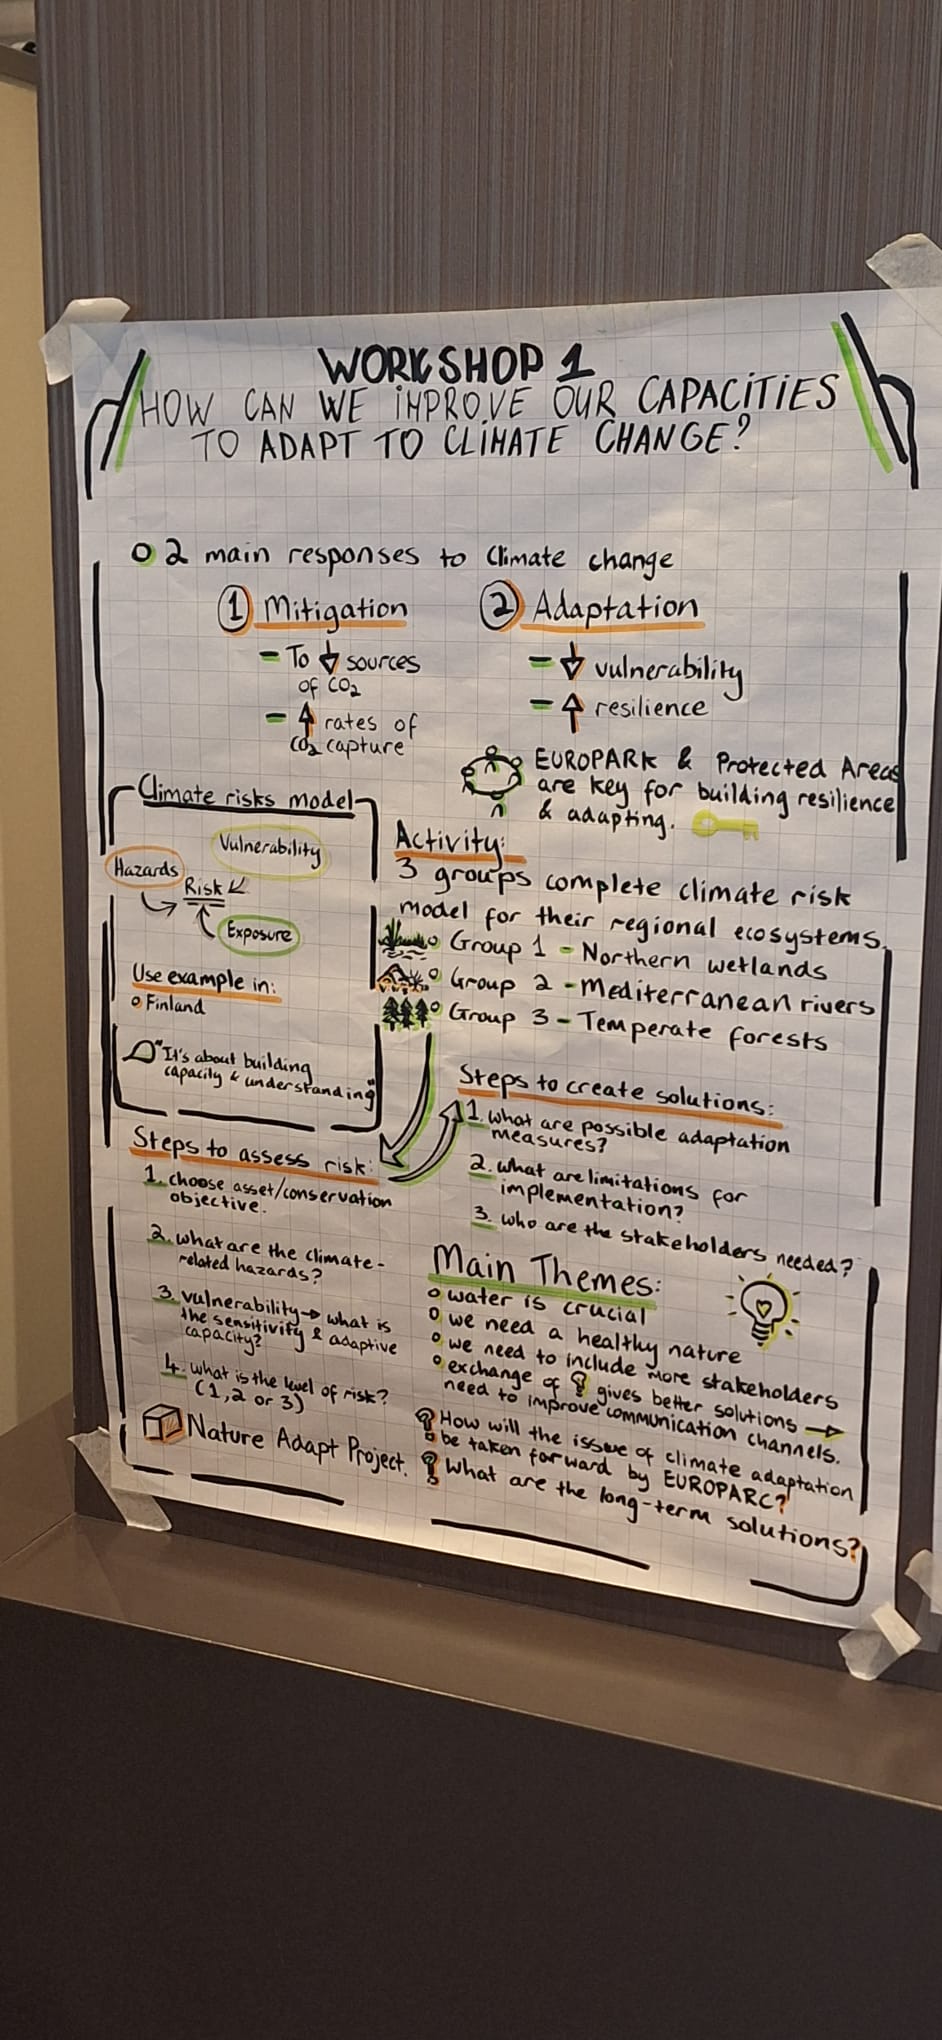 WORKSHOP 1
HOW CAN WE IMPROVE OUR CAPACITIES
TO ADAPT TO CLIMATE CHANGE?
2 main responses to Climate change
1 Mitigation
- To ↓ sources
of CO₂
- ↑ rates of
CO₂ capture
2 Adaptation
- ↓ vulnerability
- ↑ resilience
EUROPARK & Protected Areas
are key for building resilience
& adapting.
Climate risks model
Vulnerability
Hazards
Risk
Exposure
Use example in:
Finland
"It's about building
capacity & understanding"
Activity:
3 groups complete climate risk
model for their regional ecosystems.
Group 1 - Northern wetlands
Group 2 - Mediterranean rivers
Group 3 - Temperate forests
Steps to assess risk:
1. choose asset/conservation
objective.
2. what are the climate-
related hazards?
3. vulnerability → what is
the sensitivity & adaptive
capacity?
4. what is the level of risk?
(1, 2 or 3)
Nature Adapt Project.
Steps to create solutions:
1. what are possible adaptation
measures?
2. what are limitations for
implementation?
3. who are the stakeholders needed?
Main Themes:
water is crucial
we need a healthy nature
we need to include more stakeholders
exchange of gives better solutions →
need to improve communication channels.
? How will the issue of climate adaptation
be taken forward by EUROPARC?
? What are the long-term solutions?